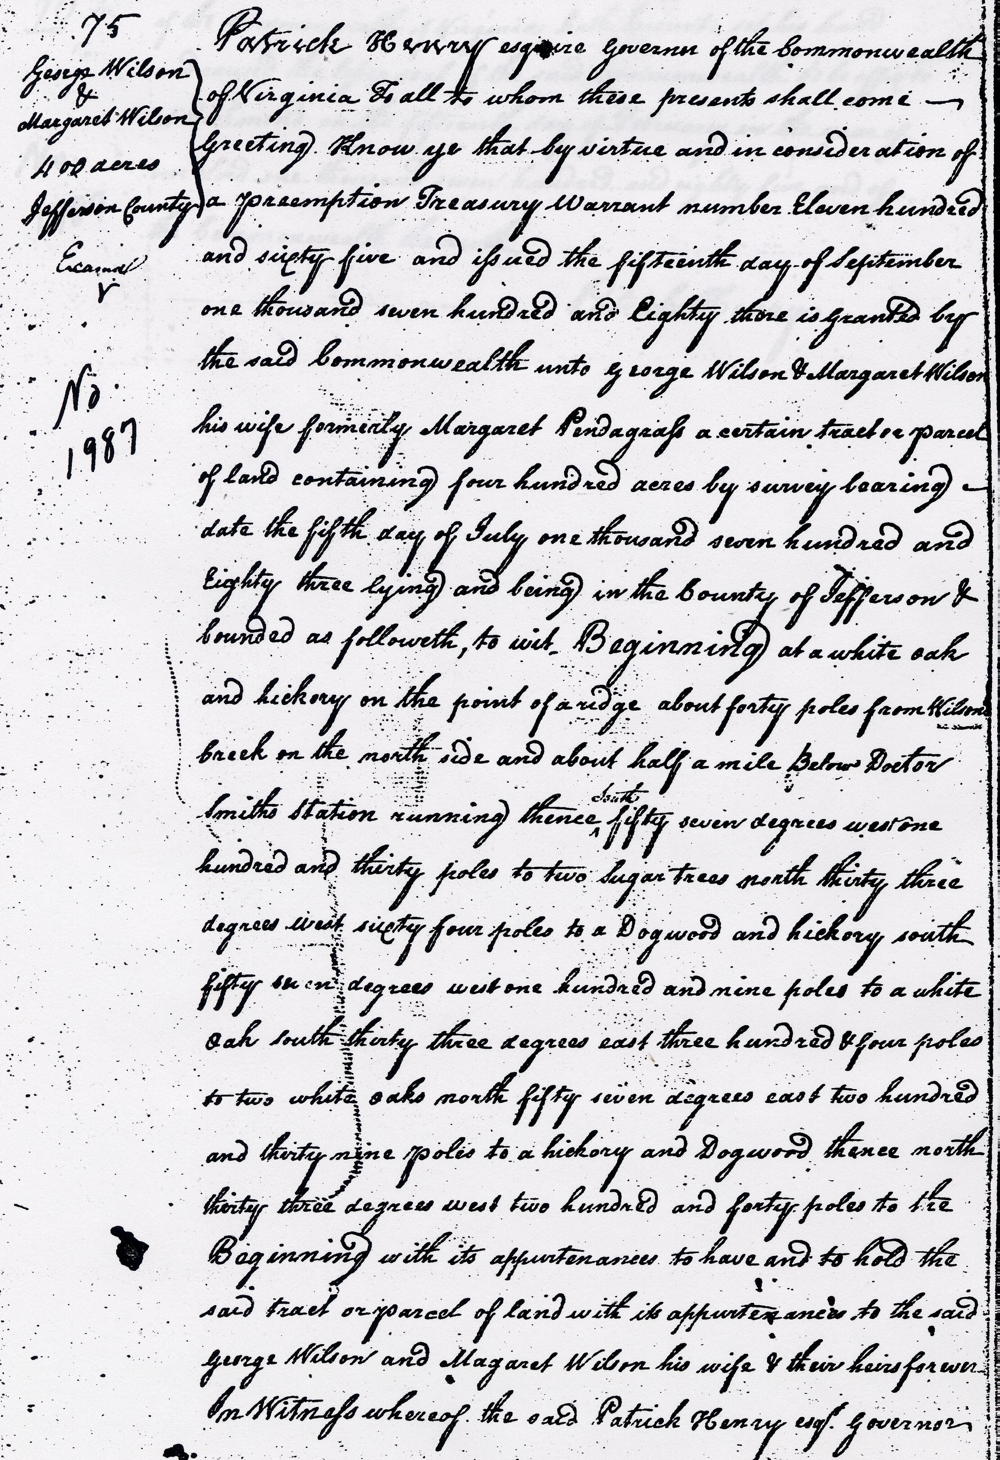 75
George Wilson
&
Margaret Wilson
400 acres
Jefferson County
Examd
No.
1987
Patrick Henry esquire Governor of the Commonwealth
of Virginia To all to whom these presents shall come —
Greeting. Know ye that by virtue and in consideration of
a preemption Treasury Warrant number Eleven hundred
and sixty five and issued the fifteenth day of September
one thousand seven hundred and Eighty there is granted by
the said Commonwealth unto George Wilson & Margaret Wilson
his wife formerly Margaret Pendagrass a certain tract or parcel
of land containing four hundred acres by survey bearing —
date the fifth day of July one thousand seven hundred and
Eighty three lying and being in the County of Jefferson &
bounded as followeth, to wit. Beginning at a white oak
and hickory on the point of a ridge about forty poles from Wilsons
Creek on the north side and about half a mile Below Doctor
Smiths Station running thence south fifty seven degrees west one
hundred and thirty poles to two Sugar trees north thirty three
degrees west sixty four poles to a Dogwood and hickory south
fifty seven degrees west one hundred and nine poles to a white
Oak south thirty three degrees east three hundred & four poles
to two white oaks north fifty seven degrees east two hundred
and thirty nine poles to a hickory and Dogwood thence north
thirty three degrees west two hundred and forty poles to the
Beginning with its appurtenances to have and to hold the
said tract or parcel of land with its appurtenances to the said
George Wilson and Magaret Wilson his wife & their heirs forever
In Witness whereof the said Patrick Henry esqr. Governor